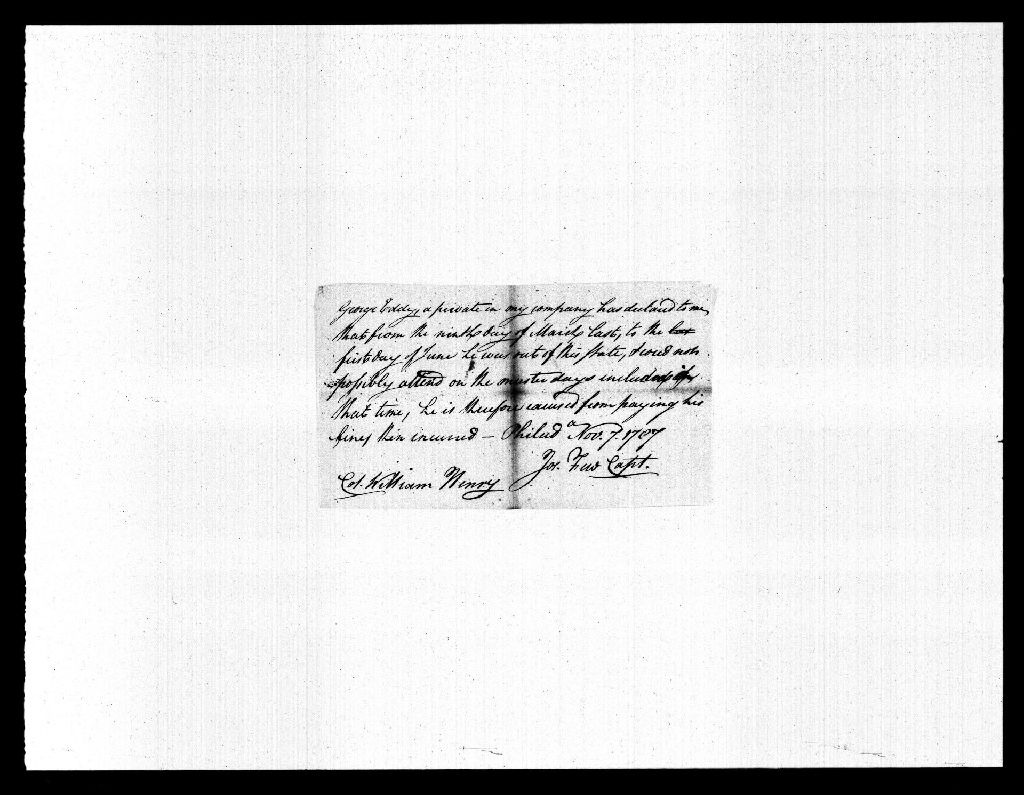 George Eddy, a private in my company has declared to me,
that from the ninth day of March last, to the last
first day of June he was out of this state, & coud not
possibly attend on the muster days included in
that time, he is therefore excused from paying his
fines then incurred — Philada Nov. 7. 1787
Jos. Few Capt.
Col. William Henry